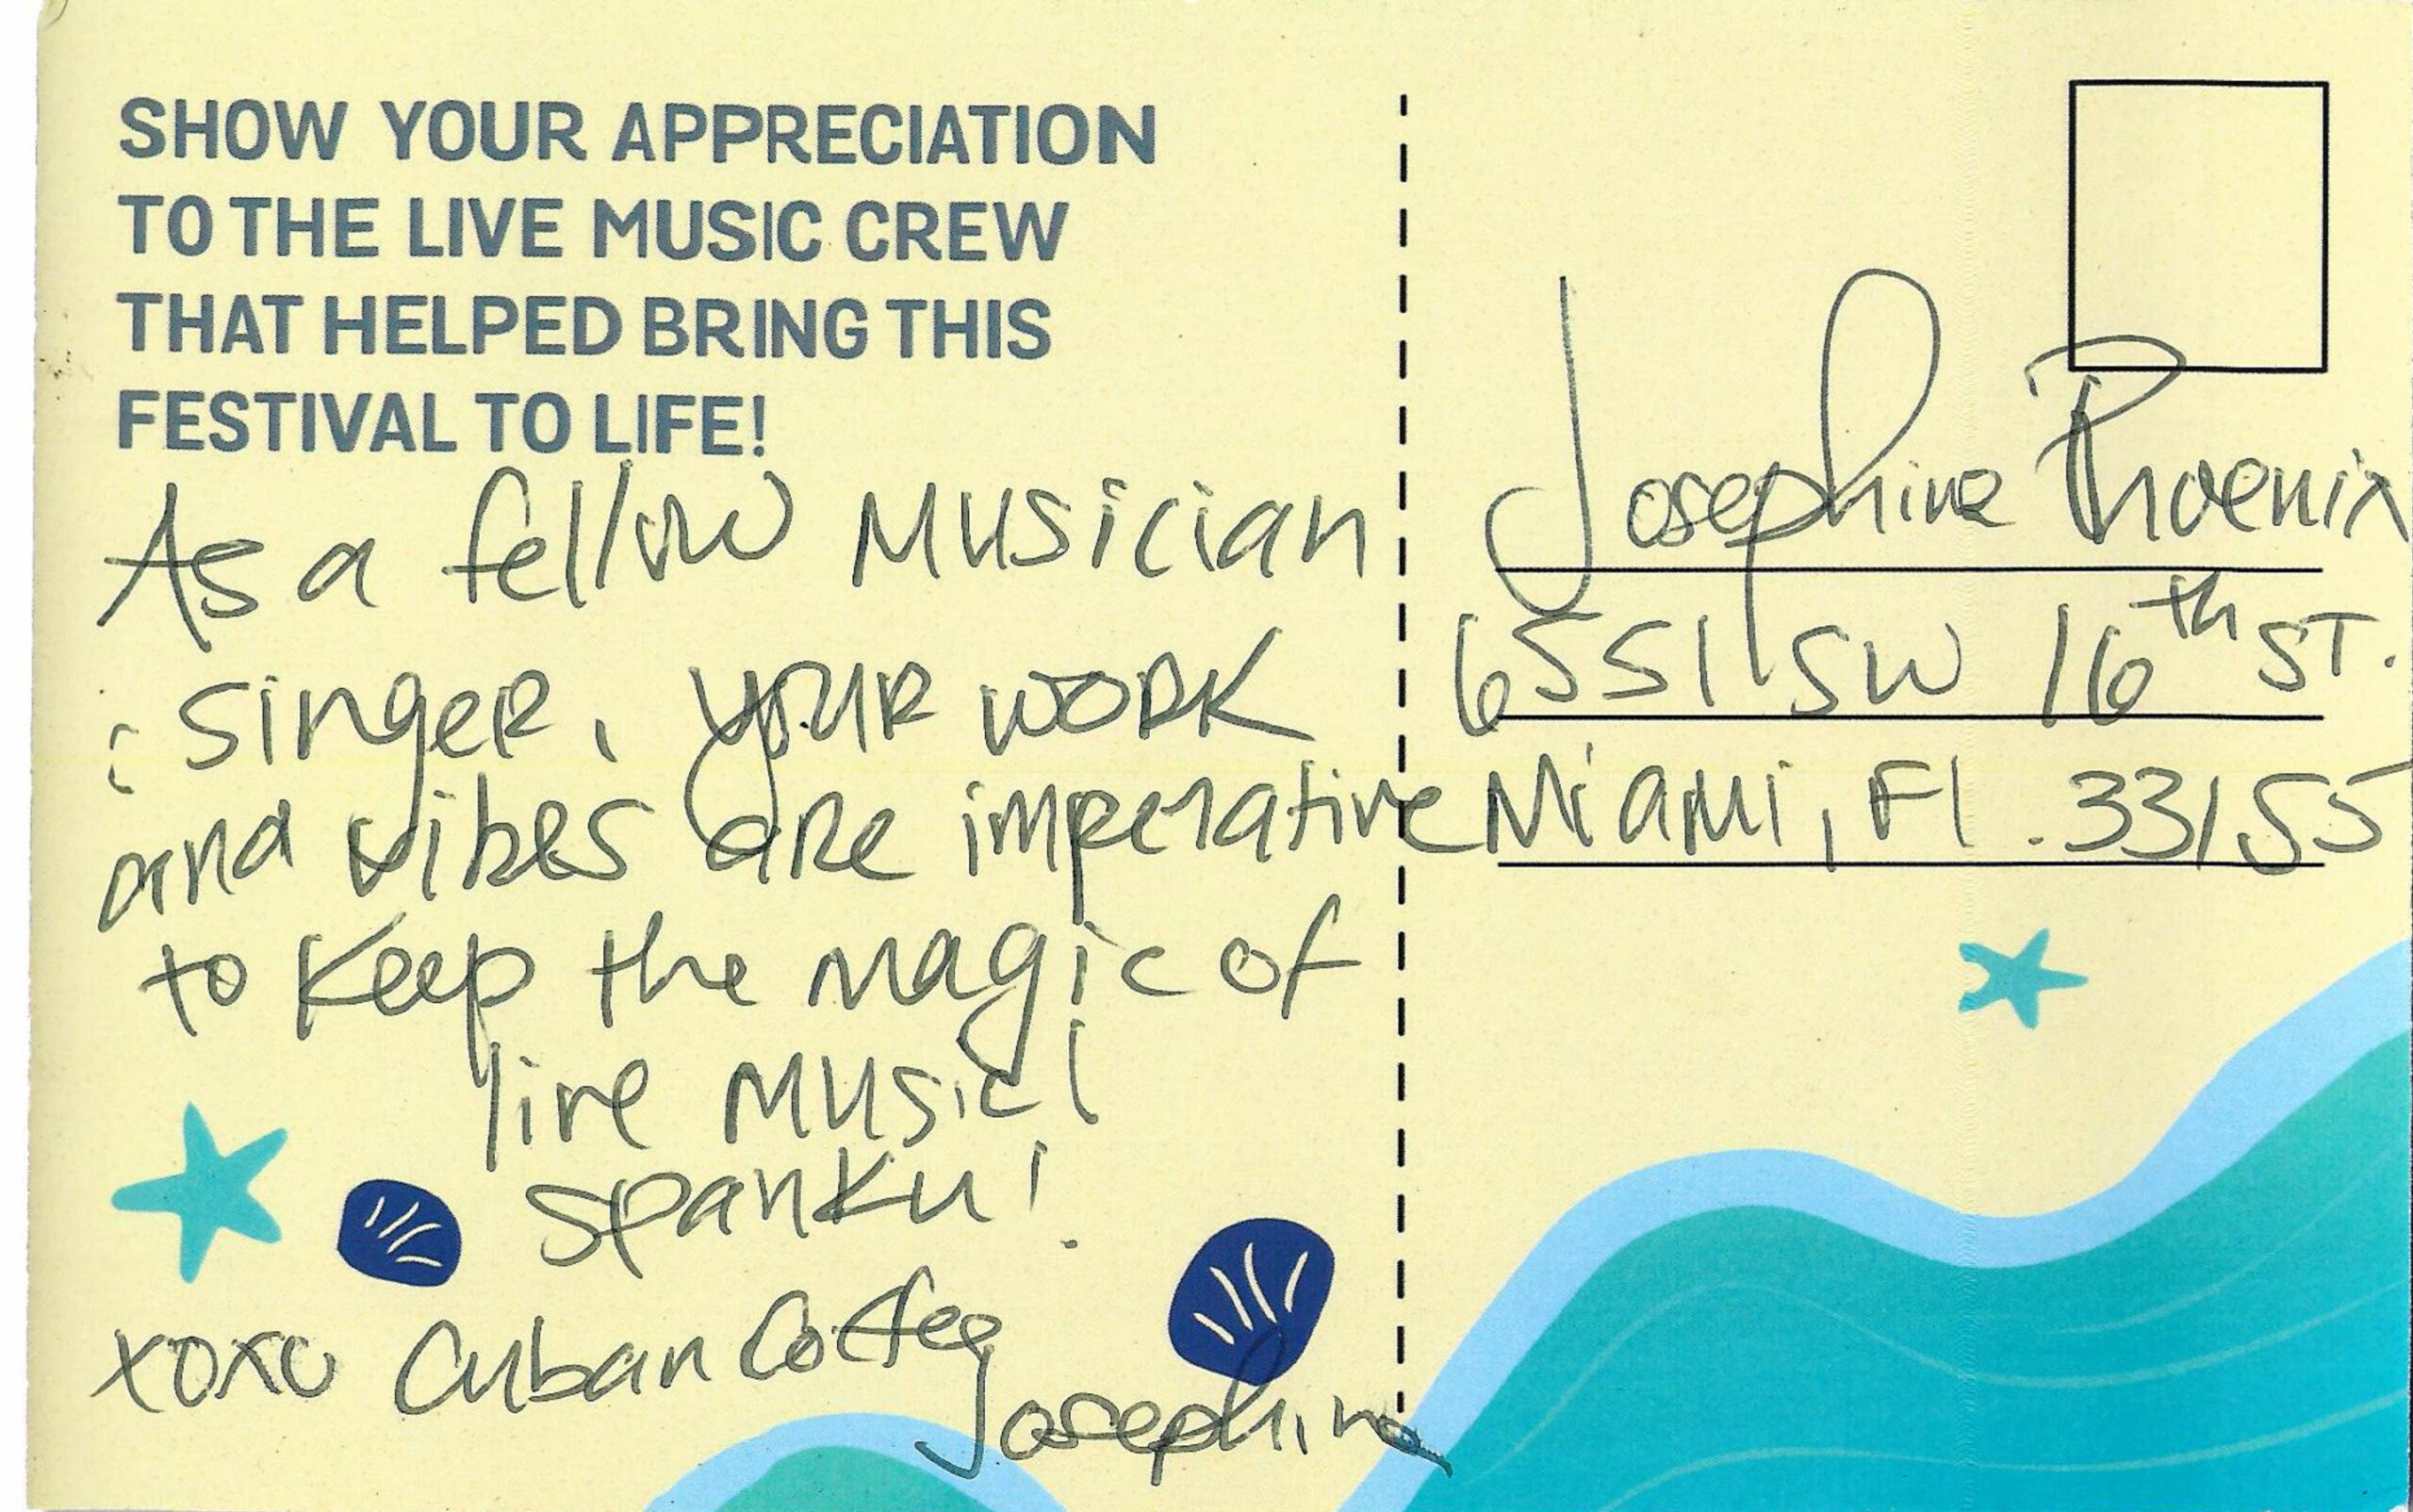 SHOW YOUR APPRECIATION
TO THE LIVE MUSIC CREW
THAT HELPED BRING THIS
FESTIVAL TO LIFE!
As a fellow Musician
; singer, your work
and vibes are imperative
to keep the magic of
live music!
Spanku!
xoxo Cuban Coffee
Josephine
Josephine Phoenix
6551 SW 16th ST.
Miami, Fl. 33155